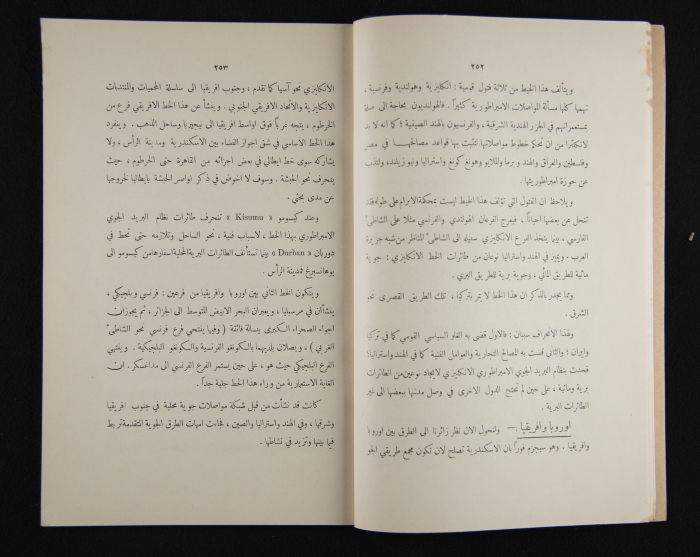 ٢٥٢
ويتألف هذا الخيط من ثلاثة فتول قومية : انكليزية وهولندية وفرنسية ،
تهمها كلها مسألة المواصلات الامبراطورية كثيراً . فالهولنديون بحاجة الى صلة
بمستعمراتهم في الجزر الهندية الشرقية ، والفرنسيون بالهند الصينية ؛ كما انه لا بد
لانكلترا من ان تحكم خطوط مواصلاتها لتثبت بها قواعد مصالحها في مصر
وفلسطين والعراق والهند و برما والملايو وهونغ كونغ واستراليا ونيوزيلند، ولتذب
عن حوزة امبراطوريتها .
ويلاحظ ان الفتول التي تؤلف هذا الخيط ليست بمحكمة الابرام على طوله فقد
تنحل عن بعضها احياناً ، فيعرج الفرعان الهولندي والفرنسي مثلا على الشاطئ
الفارسي ، بينا يتخذ الفرع الانكليزي سبيله الى الشاطئ المناظر من شبه جزيرة
العرب . ويميز في الهند واستراليا نوعان من طائرات الخط الانكليزي : جوية
مائية للطريق المائي ، وجوية برية للطريق البري .
ومما يجدر بالذكر ان هذا الخط لا يمر بتركيا ، تلك الطريق القصرى نحو
الشرق .
ولهذا الانحراف سببان : فالاول قضى به الغلو السياسي القومي كما في تركيا
وايران ؛ والثاني قضت به المصالح التجارية والعوامل الفنية كما في الهند واستراليا؛
فحدت بنظام البريد الجوي الامبراطوري الانكليزي لايجاد نوعين من الطائرات
برية ومائية ، على حين لم تحتج الدول الاخرى في وصل مدنها ببعضها الى غير
الطائرات البرية .
اوروبا وافريقيا :— ولنحول الان نظر زائرنا الى الطرق بين اوروبا
وافريقيا . وهو سيجزم فوراً بان الاسكندرية تصلح لان تكون مجمع طريقي الجو
٢٥٣
الانكليزي نحو آسيا كما تقدم ، وجنوب افريقيا الى سلسلة المحميات والمنتدبات
الانكليزية والاتحاد الافريقي الجنوبي . وينشأ عن هذا الخط الافريقي فرع من
الخرطوم ، يتجه غرباً فوق اواسط افريقيا الى نيجيريا وساحل الذهب . وينفرد
هذا الخط الاساسي في شق اجواز الفضاء بين الاسكندرية ومدينة الرأس ، ولا
يشاركه سوى خط ايطالي في بعض اجزائه من القاهرة حتى الخرطوم ، حيث
ينحرف نحو الحبشة . وسوف لا اخوض في ذكر اواصر الحبشة بايطاليا لخروجها
عن مدى بحثي .
وعند كيسومو « Kisumu » تنحرف طائرات نظام البريد الجوي
الامبراطوري بهذا الخط ، لاسباب فنية ، نحو الساحل وتلازمه حتى تحط في
دوربان « Durban » بينما تستأنف الطائرات البرية المحلية اسفارها من كيسومو الى
يوهانسبرغ فمدينة الرأس .
ويتكون الخط الثاني بين اوروبا وافريقيا من فرعين : فرنسي وبلجيكي ،
ينشأان في مرسيليا ، ويعبران البحر الابيض المتوسط الى الجزائر ، ثم يجوزان
اجواء الصحراء الكبرى ببسالة فائقة ( وفيها ينتحي فرع فرنسي نحو الشاطئ
الغربي ) ، ويصلان بلديهما بالكونغو الفرنسية والكونغو البلجيكية . وينتهي
الفرع البلجيكي حيث هو ، على حين يستمر الفرع الفرنسي الى مدغسكر . ان
الغاية الاستعمارية من وراء هذا الخط جلية جداً .
كانت قد نشأت من قبل شبكة مواصلات جوية محلية في جنوب افريقيا
وشرقها ، وفي الهند واستراليا والصين ، فجاءت امهات الطرق الجوية المتقدمة تربط
فيما بينها وتزيد في نشاطها .